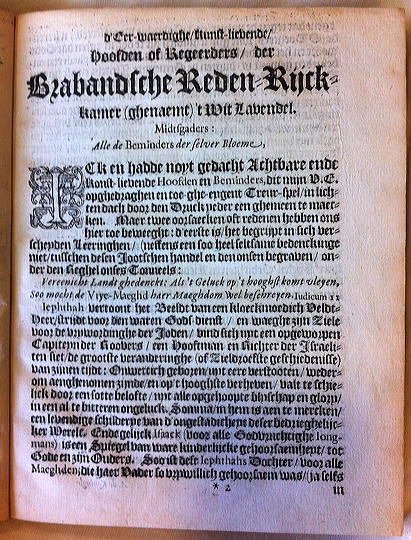 d'Eer-waerdighe/kunst-lievende/
Hoofden of Regeerders/ der
Brabandsche Reden-Rijck-
kamer (ghenaemt) 't Wit Lavendel.
Midtsgaders:
Alle de Beminders der selver Bloeme.
ICk en hadde noyt gedacht Achtbare ende
Konst-lievende Hoofden en Beminders, dit mijn V.E.
opghedraghen en toe-ghe-eygent Treur-spel/ in lich-
ten dach door den Druck yeder een ghemeen te maec-
ken. Maer twee oorsaecken oft redenen hebben ons
hier toe beweeght: d'eerste is/ het begrijpt in sich ver-
scheyden Leeringhen/ (neffens een soo heel seltsame bedenckinge
niet/ tusschen desen Jootschen handel en den onsen begraven/ on-
der den Reghel onses Tonneels:
Vereenicht Landt ghedenckt: Als 't Geluck op 't hooghst komt vleyen,
Soo mocht de Vrye-Maeghd haer Maeghdom wel beschreyen. Iudicum 11
Iephthah vertoont het Beeldt van een kloeckmoedich Veldt-
Heer/ strydt voor den waren Gods-dienst/ en waeght zijn Ziele
voor de bywoordinghe der Joden/ wird schijnt een opgeworpen
Capiteyn der Roovers/ een Hooftman en Richter der Israeli-
ten siet/ de grootste veranderinghe (of Zielroerste geschiedenisse)
van zijnen tijdt: Onwettich geboren/ wt eere verstooten/ weder-
om aenghenomen zijnde/ en op 't hooghste verheven/ valt te schie-
lick door een sotte belofte/ wt alle opgehoopte blyschap en glory/
in een al te bitteren ongeluck. Somma/ in hem is aen te mercken/
een levendighe schilderye van d'ongestadicheyt deser bedrieghelijc-
ker Werelt. Ende gelijck Isaack (voor alle Godvruchtighe Iong-
mans) is een Spiegel van ware kinderlijcke gehoorsaemheyt/ tot
Gode en zijn Ouders. Soo ist dese Iephthahs Dochter/ voor alle
Maeghden/ die haer Vader so vrywillich gehoorsaem was/ (ja selfs
* 2
in